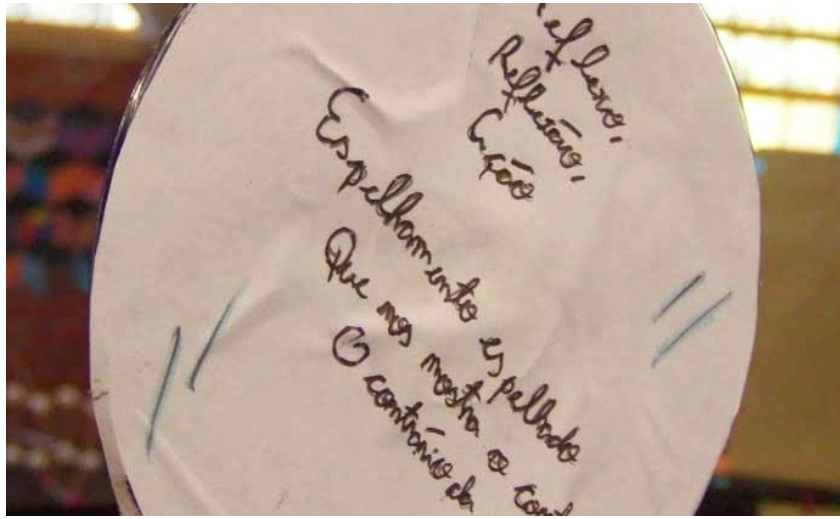 Reflexo,
Reflexão,
Espelhamento espelhado
Que nos mostra o
O contrário da